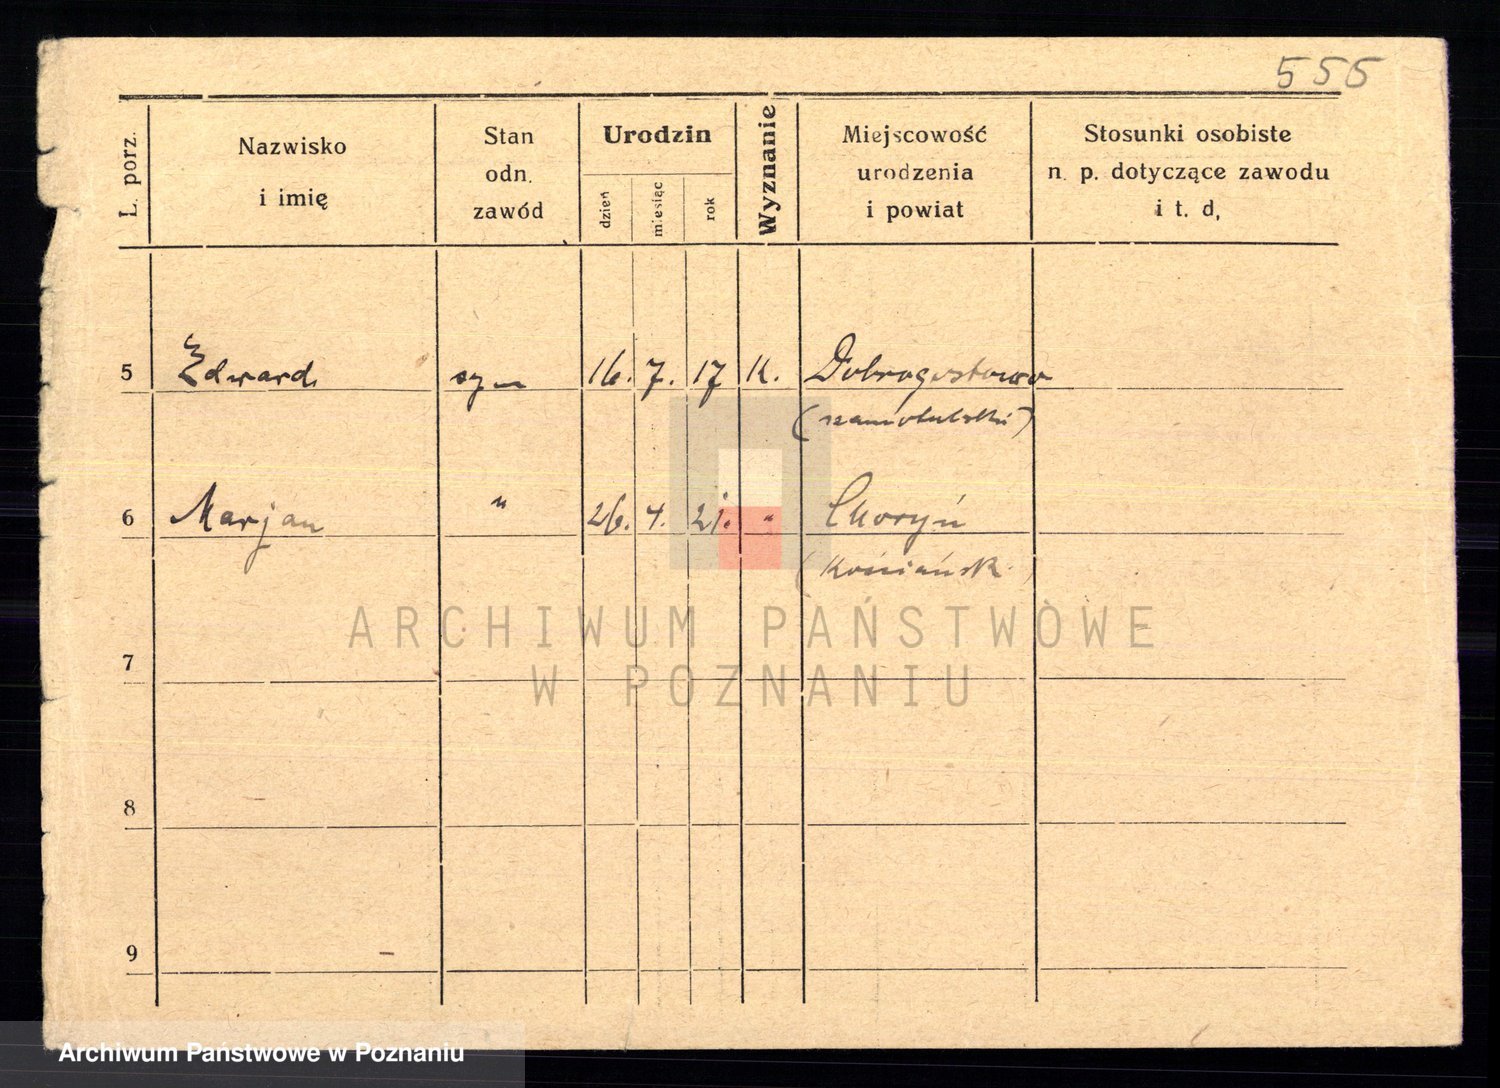 555
L. porz.
Nazwisko
i imię
Stan
odn.
zawód
Urodzin
dzień
miesiąc
rok
Wyznanie
Miejscowość
urodzenia
i powiat
Stosunki osobiste
n. p. dotyczące zawodu
i t. d,
5 Edward syn 16. 7. 17 K. Dobrogostowo
(szamotulski)
6 Marjan " 26. 4. 21. " Choryń
(Kościańsk
7
8
9
ARCHIWUM PAŃSTWOWE
W POZNANIU
Archiwum Państwowe w Poznaniu